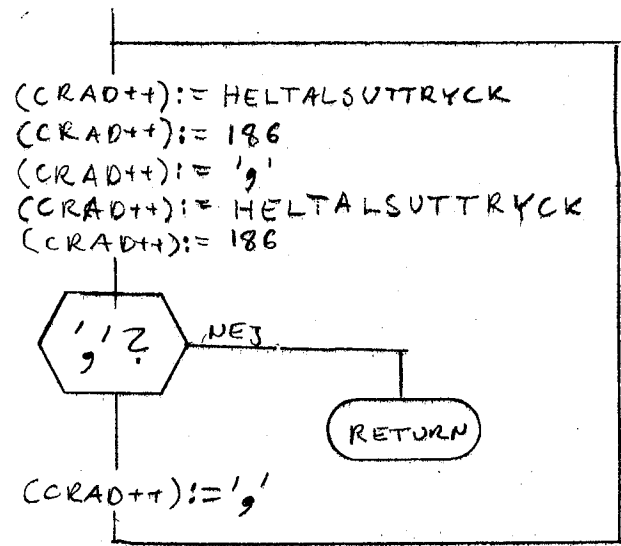 (CRAD++):= HELTALSUTTRYCK
(CRAD++):= 186
(CRAD++):= ','
(CRAD++):= HELTALSUTTRYCK
(CRAD++):= 186
','?
NEJ
RETURN
(CRAD++):=','